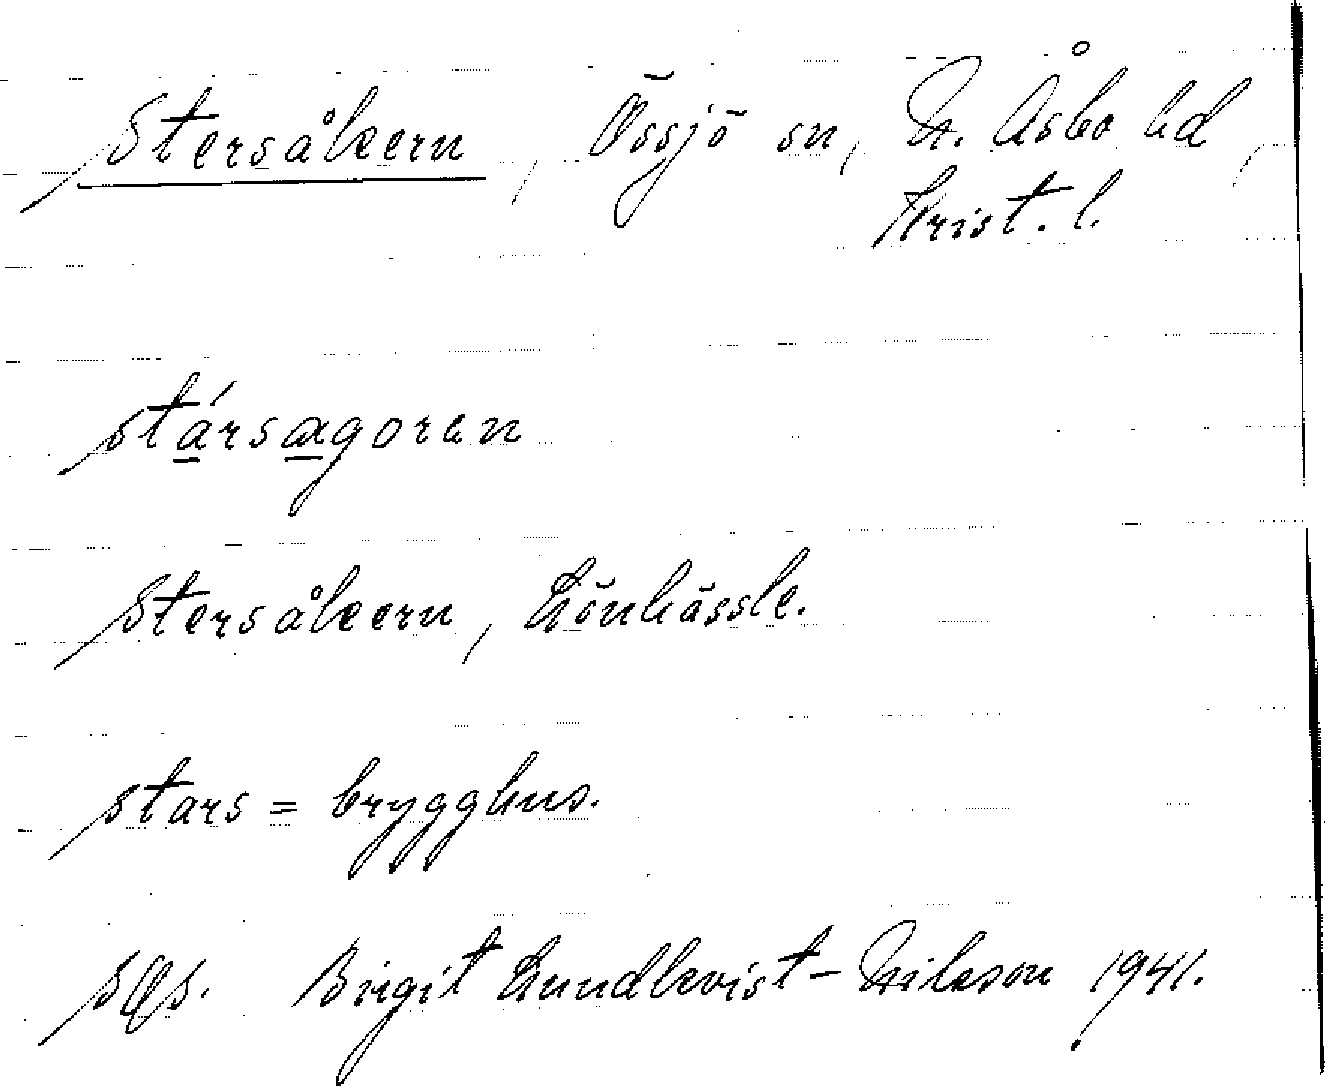 Stersåkern, Össjö sn, N. Åsbo hd,
Krist. l.
stársagoren
Stersåkern, Lönhässle.
stars = brygghus.
Birgit Lundkvist-Nilsson 1941.